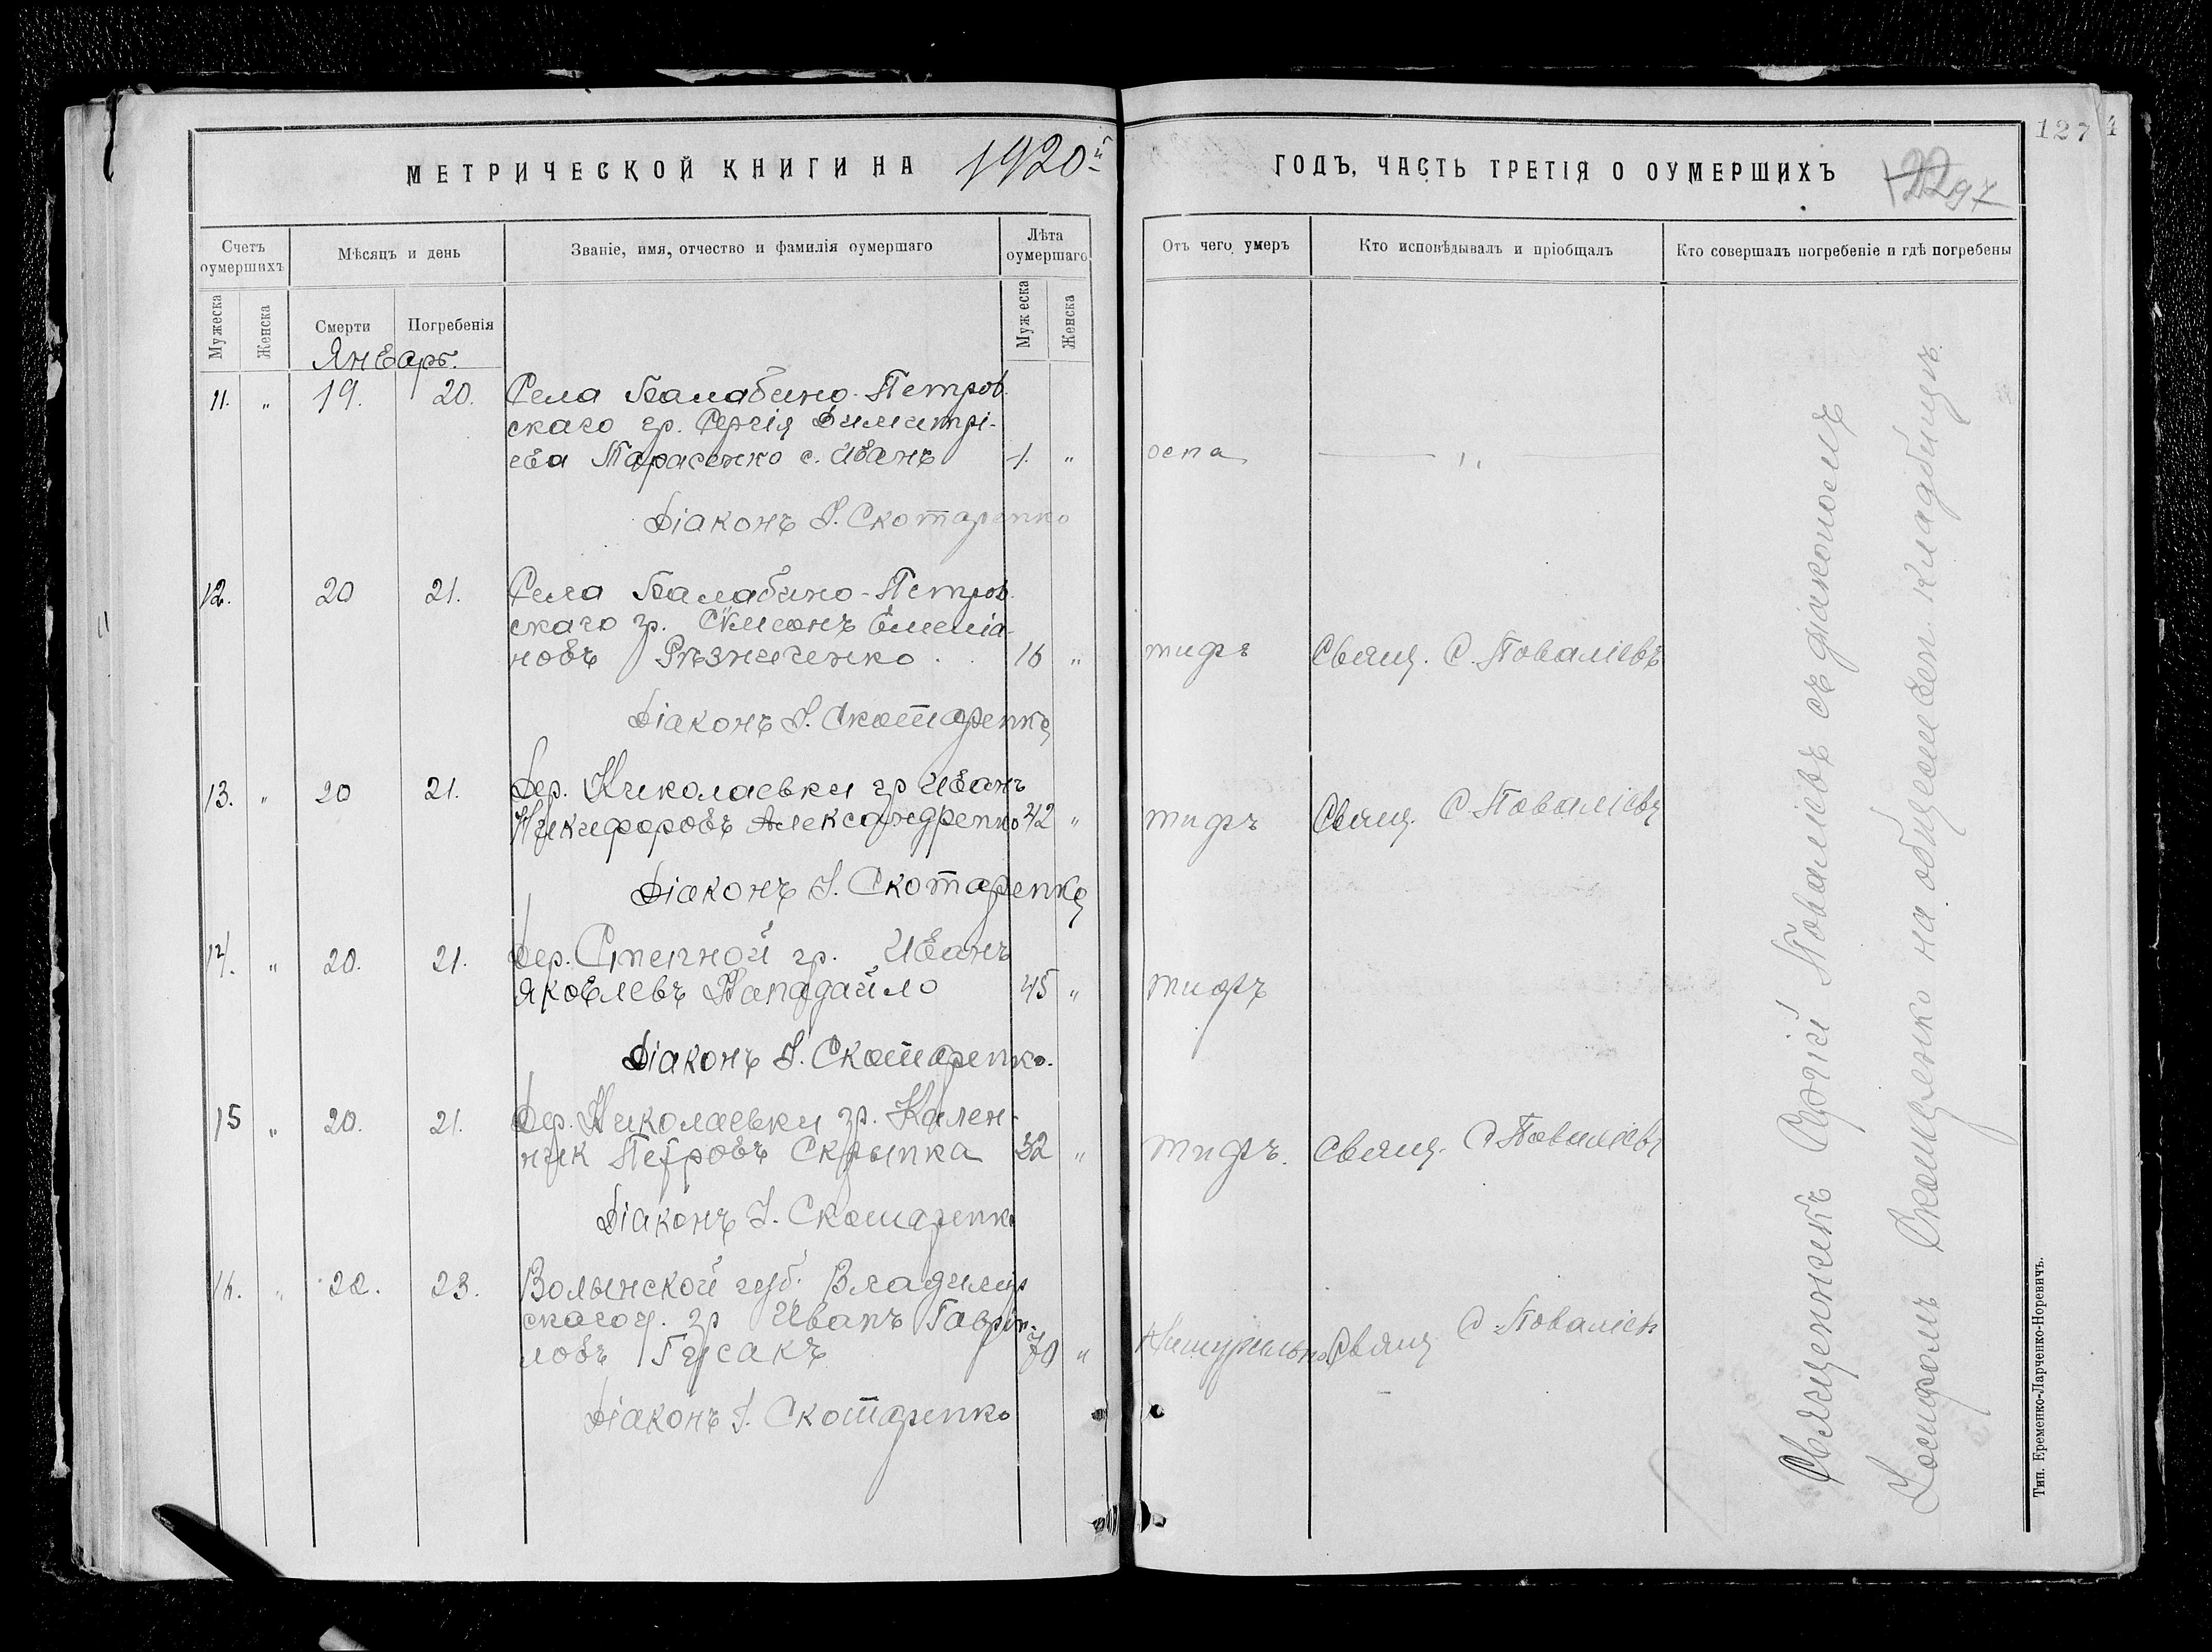 МЕТРИЧЕСКОЙ КНИГИ НА 1920й
ГОДЪ, ЧАСТЬ ТРЕТІЯ О ОУМЕРШИХЪ
127
Счетъ оумершихъ
Мѣсяцъ и день
Званіе, имя, отчество и фамилія оумершаго
Лѣта оумершаго
Отъ чего умеръ
Кто исповѣдывалъ и пріобщалъ
Кто совершалъ погребеніе и гдѣ погребены
Мужеска
Женска
Смерти
Погребенія
Мужеска
Женска
Январь.
11. " 19. 20. Села Балабино-Петров
скаго гр. Сергія Димитрі-
ева Тарасенко с. Иванъ 1. " оспа — " —
Діаконъ І. Скотаренко
12. 20 21. Села Балабино-Петров
скаго гр. Сѵмеонъ Емеліа-
новъ Рѣзниченко . . 16 " тифъ Свящ. С. Поваліевъ
Діаконъ І. Скотаренко
13. " 20 21. Дер. Николаевки гр Иванъ
Никифоровъ Александренко 42 " тифъ Свящ. С Поваліевъ
Діаконъ І. Скотаренко
14. " 20. 21. Дер. Степной гр. Иванъ
Яковлевъ Нападайло 45 " тифъ
Діаконъ І. Скотаренко.
15 " 20. 21. Дер. Николаевки гр. Кален-
ник Петровъ Скрыпка 32 " тифъ. Свящ. С Поваліевъ
Діаконъ І. Скотаренко
16. " 22. 23. Волынской губ. Владимир
скаго у. гр Иванъ Гаврии-
ловъ Гусакъ 70 " Натурально Свящ С. Поваліев
Діаконъ І. Скотаренко
Священникъ Сергій Поваліевъ съ діакономъ
Іосифомъ Скотаренко на обществен. кладбищѣ.
Тип. Еременко-Ларченко-Норевичъ.